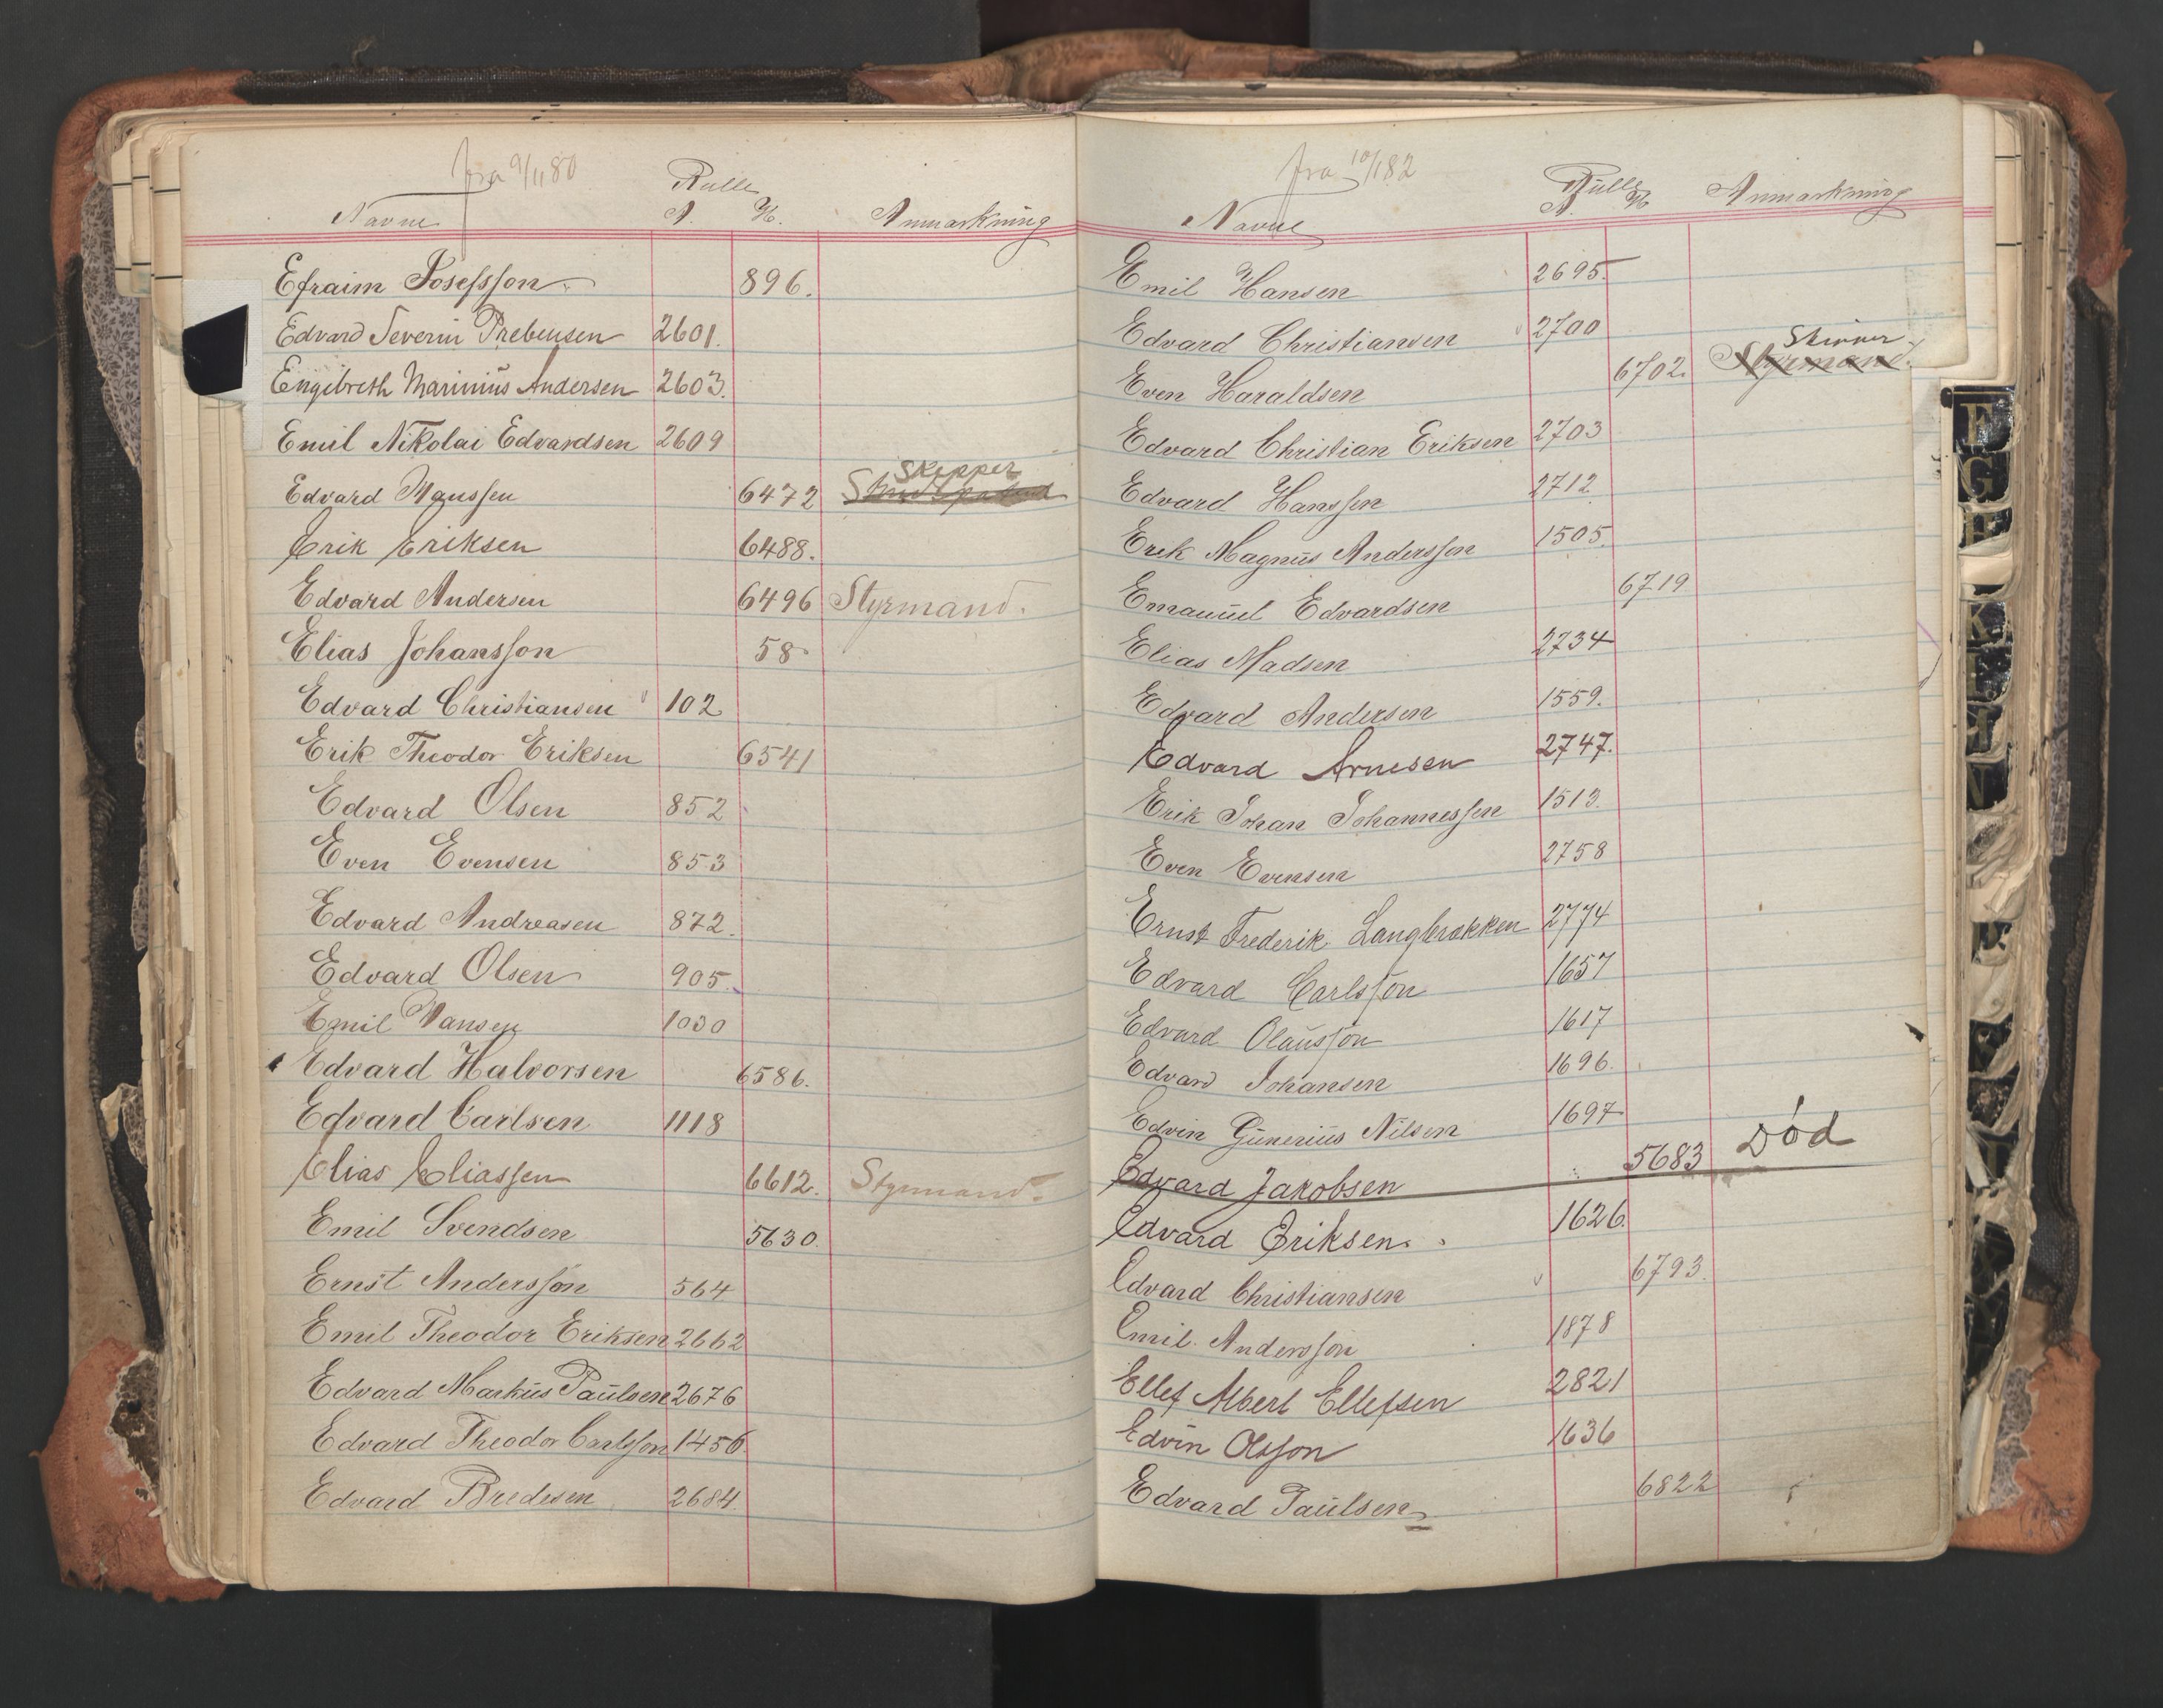 fra 9/11 80
Rulle
Navne A. H. Anmærkning
Efraim Josefsson 896.
Edvard Severin Prebensen 2601.
Engibreth Marinius Andersen 2603.
Emil Nikolai Edvardsen 2609
Skipper
Edvard Manssen 6472
Erik Eriksen 6488.
Edvard Andersen 6496 Styrmand.
Elias Johansson 58
Edvard Christiansen 102
Erik Theodor Eriksen 6541
Edvard Olsen 852
Even Evensen 853
Edvard Andreasen 872.
Edvard Olsen 905.
Emil Hansen 1030
Edvard Halvorsen 6586.
Edvard Carlsen 1118
Elias Eliassen 6612. Styrmand.
Emil Svendsen 5630.
Ernst Andersson 564
Emil Theodor Eriksen 2662
Edvard Markus Paulsen 2676
Edvard Theodor Carlsson 1456.
Edvard Bredesen 2684.
fra 10/1 82
Rulle
Navne A. H. Anmærkning
Emil Hansen 2695.
Edvard Christiansen 2700
Skipper
Even Haraldsen 6702. Styrmand.
Edvard Christian Eriksen 2703
Edvard Hanssen 2712
Erik Magnus Andersson 1505.
Emanuel Edvardsen 6719
Elias Madsen 2734
Edvard Andersen 1559.
Edvard Arnesen 2747.
Erik Johan Johannessen 1513.
Even Evensen 2758
Ernst Frederik Langbrækken 2774
Edvard Carlsson 1657
Edvard Olausson 1617
Edvard Johansen 1696.
Edvin Gunerius Nilsen 1697
Edvard Jakobsen 5683 Död
Edvard Eriksen. 1626.
Edvard Christiansen 6793.
Emil Andersson 1878
Ellef Albert Ellefsen 2821
Edvin Olsson 1636
Edvard Paulsen 6822
F
G
H
K
L
N